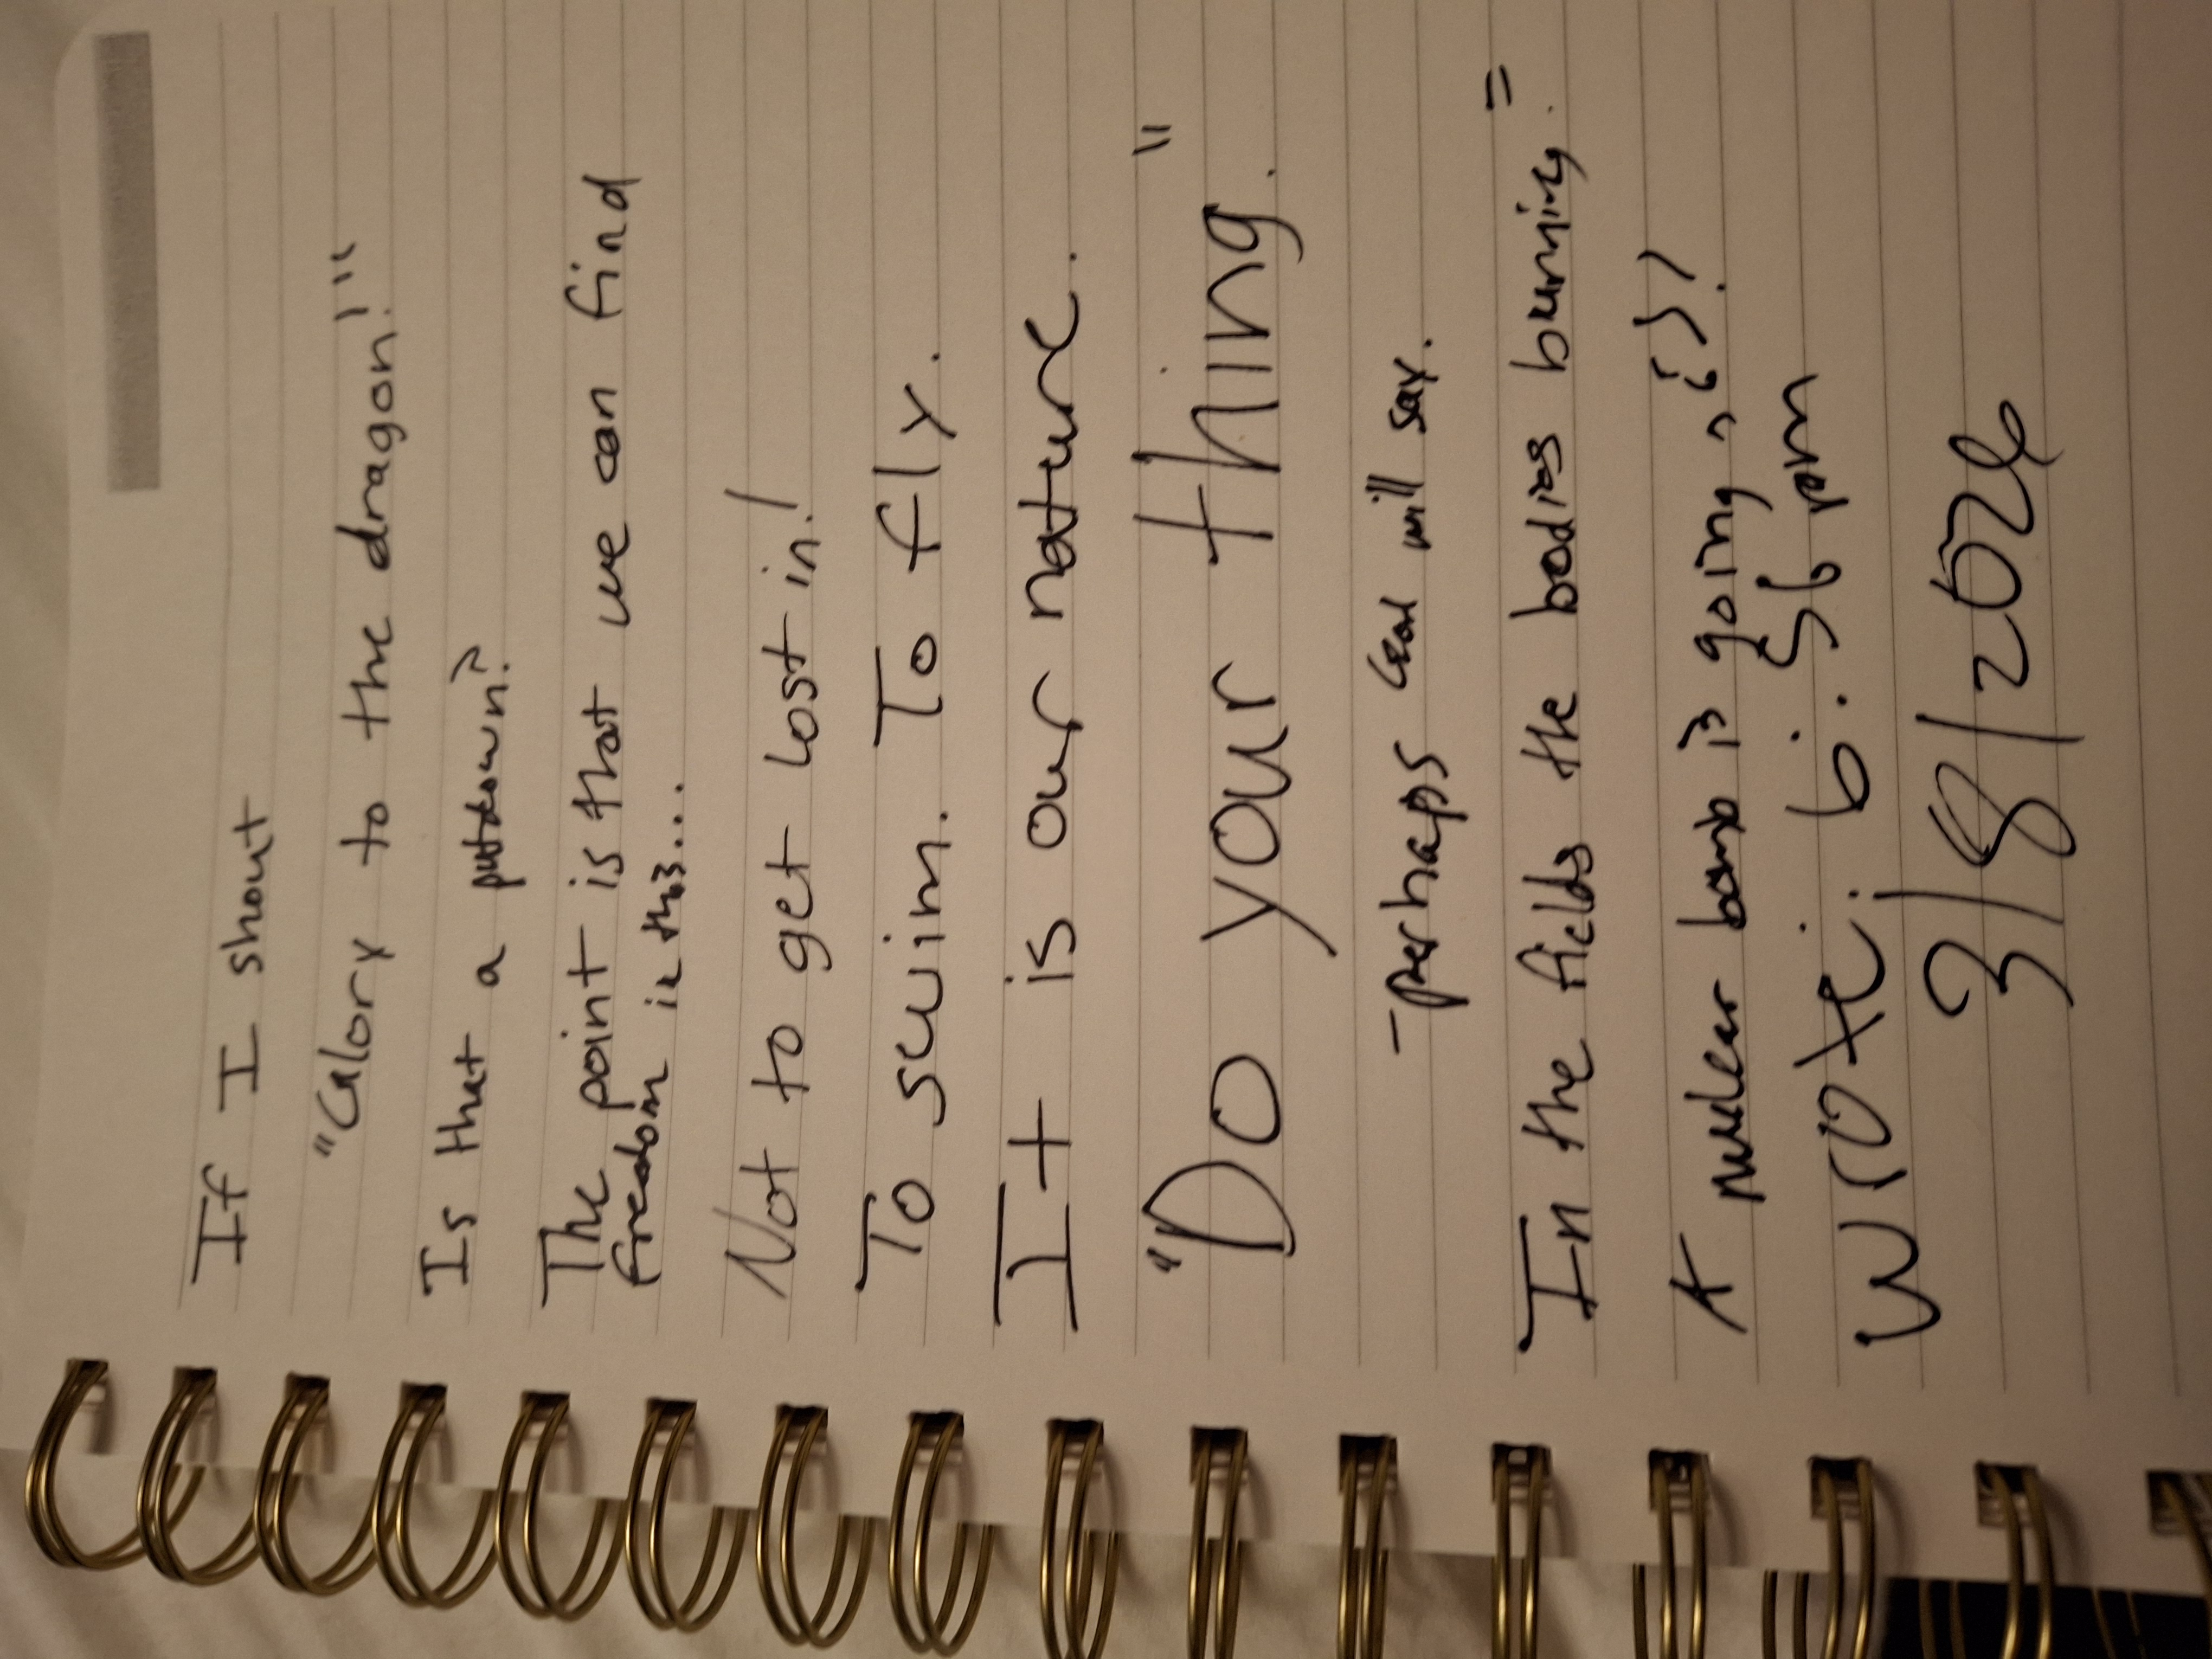 If I shout
"Glory to the dragon!"
Is that a putdown?
The point is that we can find
freedom in this...
Not to get lost in!
To swim. To fly.
It is our nature.
"Do your thing."
- perhaps will say.
In the fields the bodies burning."
A nuclear bomb is going
Wrote: 6:56 pm
3/8/2026